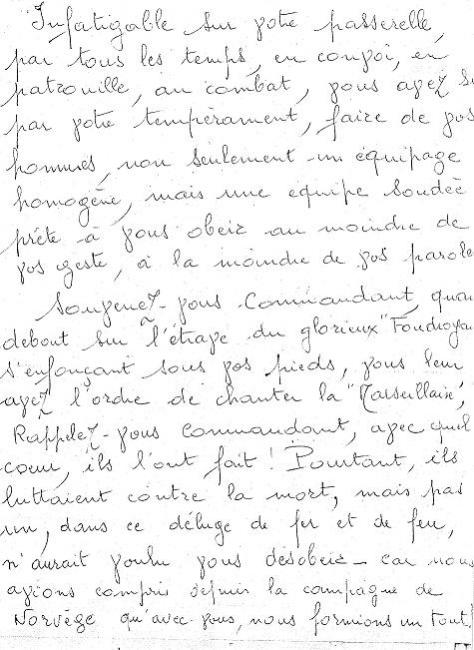 Infatigable sur votre passerelle,
par tous les temps, en convoi, en
patrouille, au combat, vous avez su
par votre tempèrament, faire de vos
hommes, non seulement un équipage
homogène, mais une equipe soudée
prête à vous obeir au moindre de
vos geste, à la moindre de vos parole
Souvenez-vous Commandant, quan
debout sur l'étrave du glorieux "Foudroyan
s'enfonçant sous vos pieds, vous leur
avez l'ordre de chanter la "Marseillaise",
Rappelez-vous commandant, avec quel
coeur, ils l'ont fait! Pourtant, ils
luttaient contre la mort, mais pas
un, dans ce déluge de fer et de feu,
n'aurait voulu vous désobeir - car nous
avions compris depuis la campagne de
Norvège qu'avec vous, nous formions un tout.